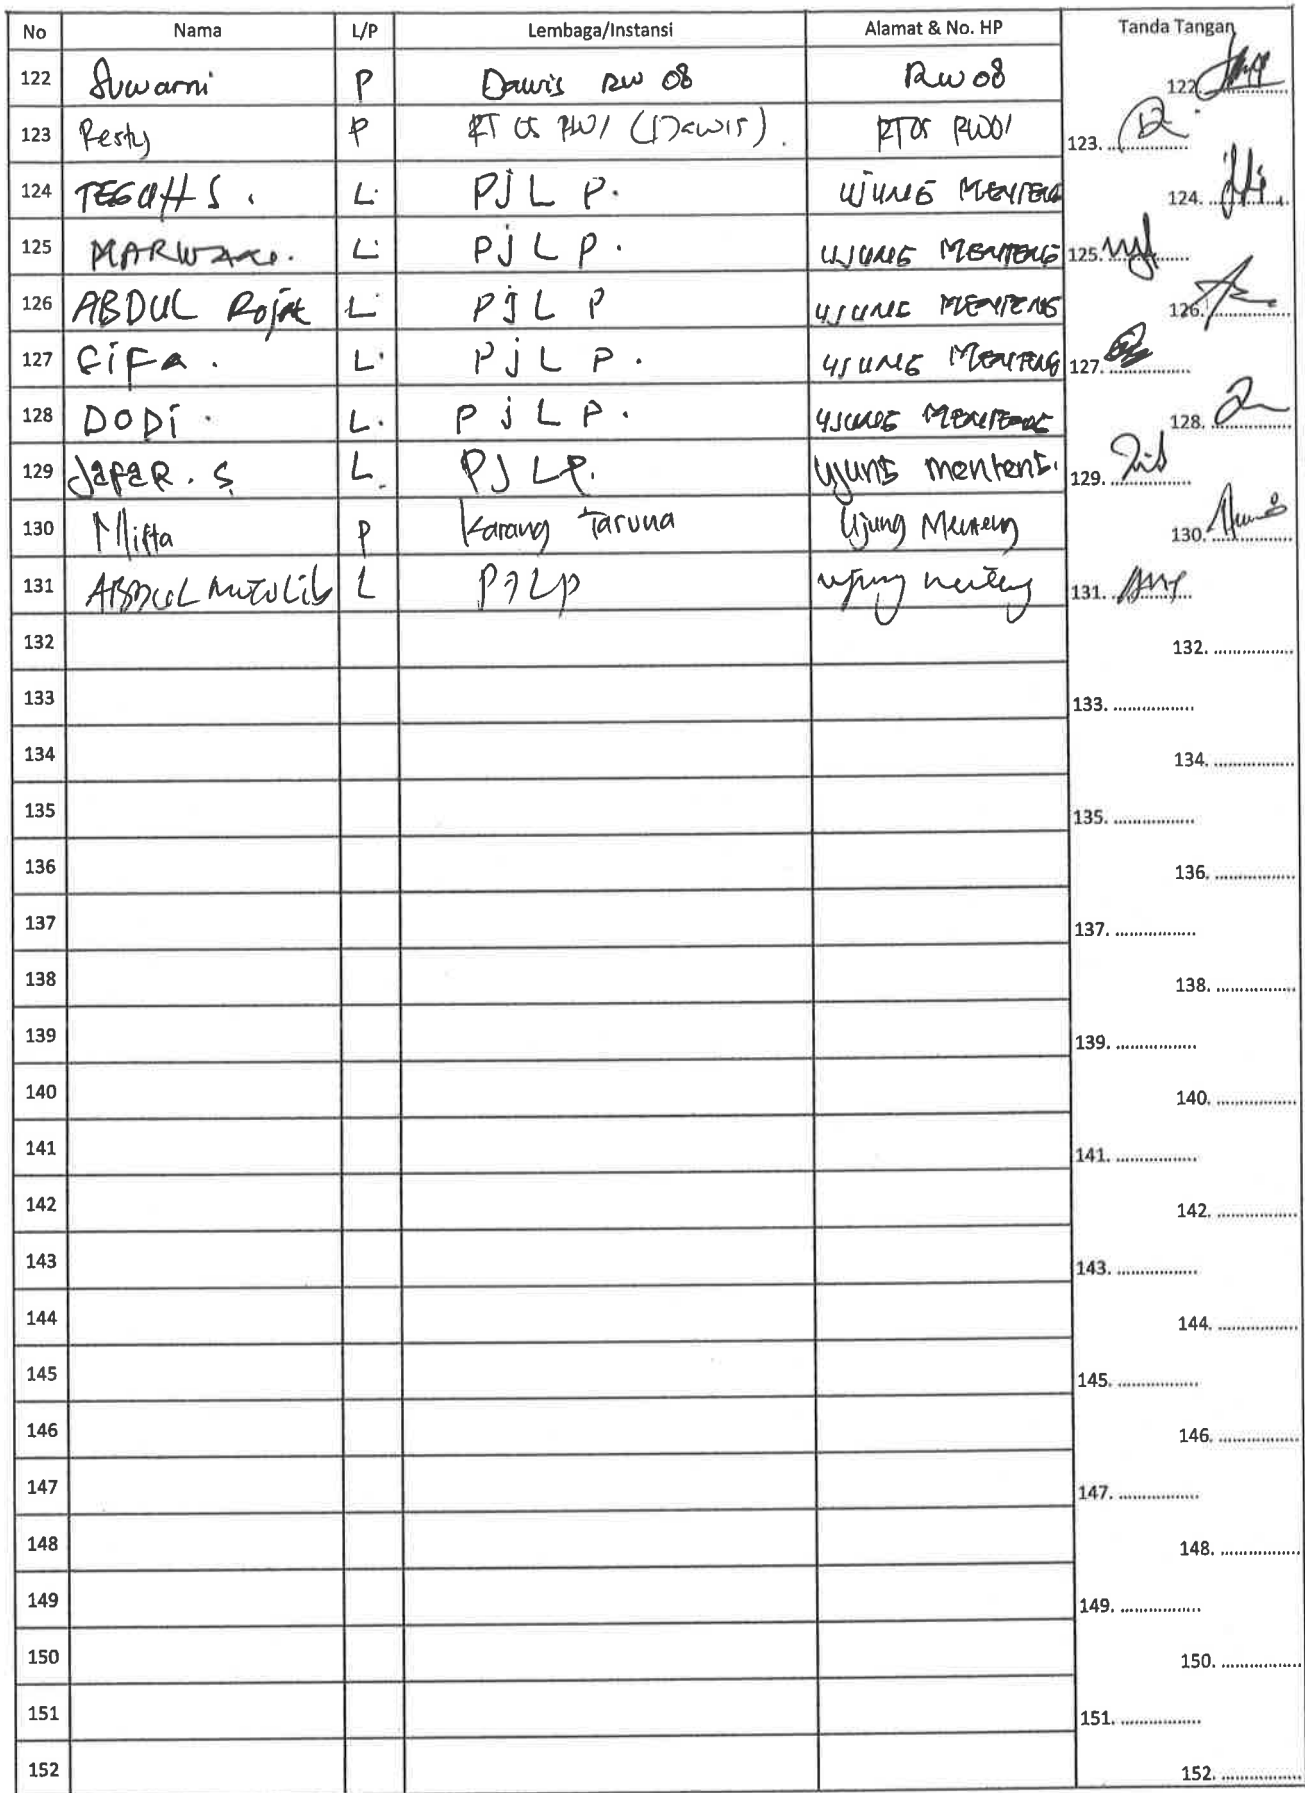 No Nama L/P Lembaga/Instansi Alamat & No. HP Tanda Tangan
122 Suwarni P Dawis RW 08 RW 08 122.
123 Resty P RT 05 RW 1 (Dawis). RT05 RW01 123.
124 TEGUH S. L. PJLP. UJUNG MENTENG 124.
125 L. PJLP. UJUNG MENTENG 125.
126 ABDUL Rojak L. PJLP UJUNG MENTENG 126.
127 CIFA. L. PJLP. UJUNG MENTENG 127.
128 DODI. L. PJLP. UJUNG MENTENG 128.
129 JAFAR. S L. PJLP. Ujung menteng. 129.
130 Mifta P Karang Taruna Ujung Menteng 130.
131 ABDUL MUTOLIB L PJLP ujung menteng 131.
132 132. ................
133 133. ................
134 134. ................
135 135. ................
136 136. ................
137 137. ................
138 138. ................
139 139. ................
140 140. ................
141 141. ................
142 142. ................
143 143. ................
144 144. ................
145 145. ................
146 146. ................
147 147. ................
148 148. ................
149 149. ................
150 150. ................
151 151. ................
152 152. ................